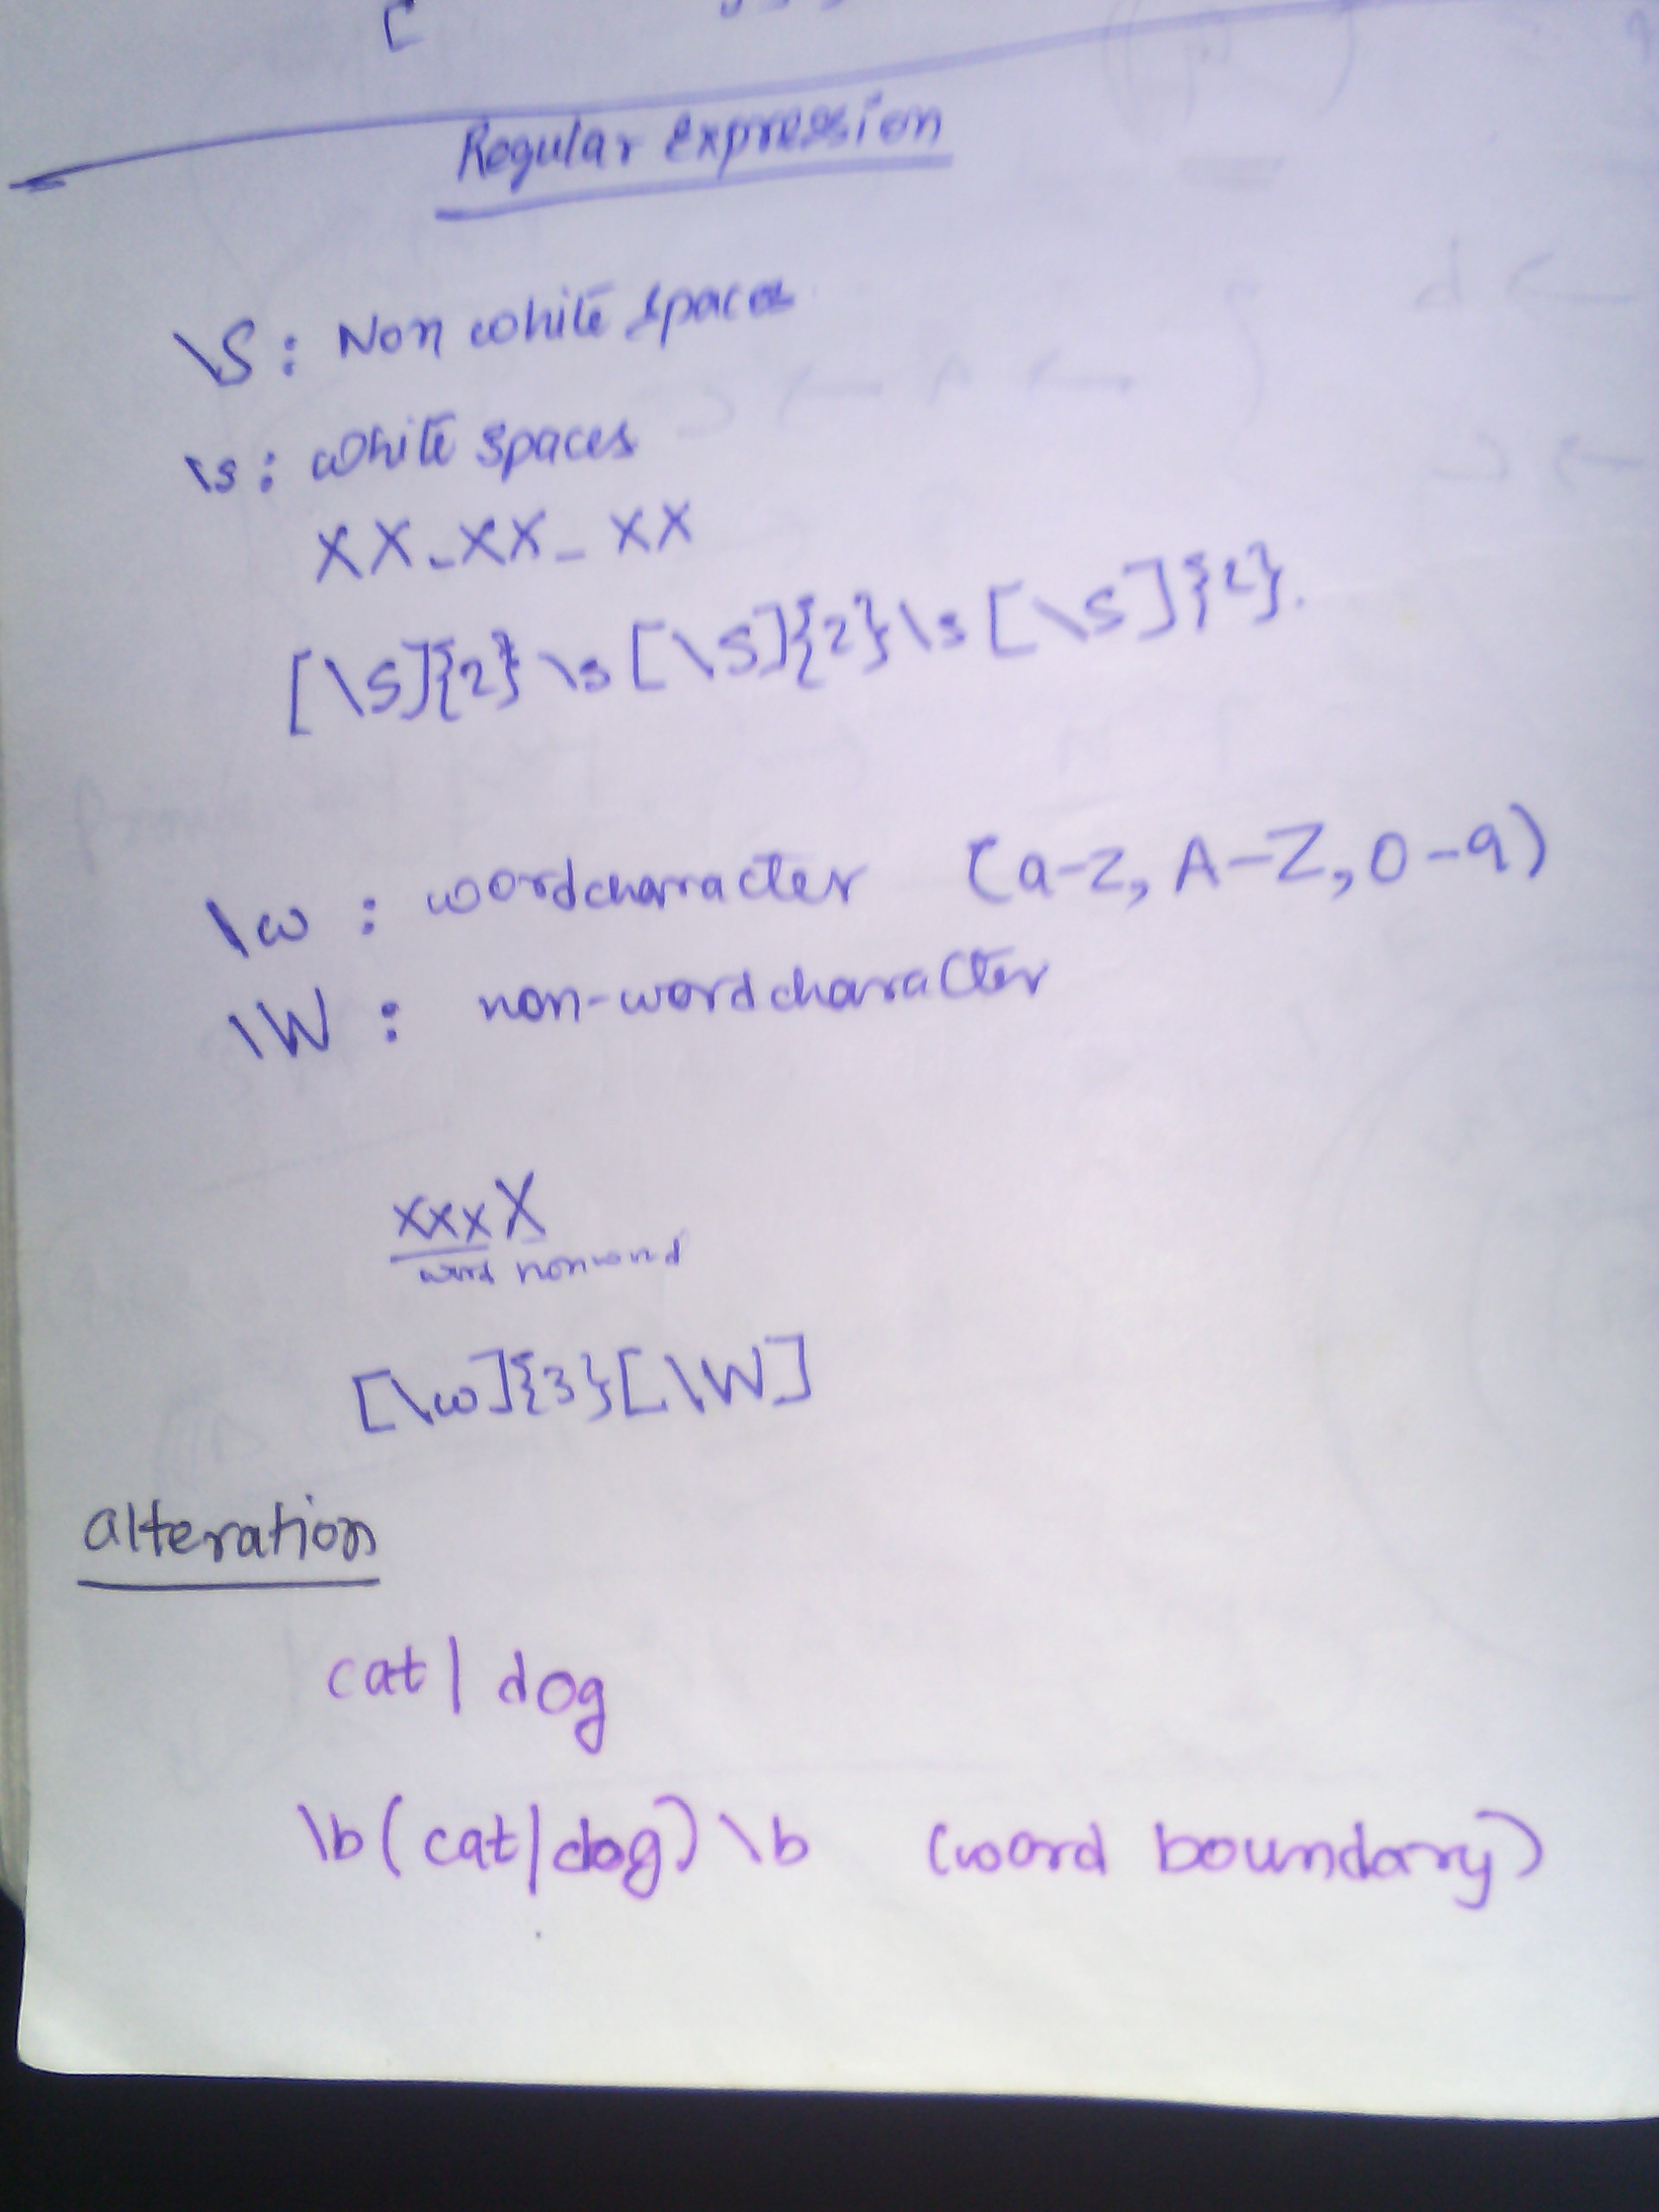 Regular Expression
\S: Non white spaces
\s: white spaces
XX_XX_ XX
[\S]{2}\s[\S]{2}\s[\S]{2}.
\w : wordcharacter (a-z, A-Z, 0-9)
\W : non-wordcharacter
xxxX
word nonword
[\w]{3}[\W]
alteration
cat| dog
\b(cat|dog)\b (word boundary)